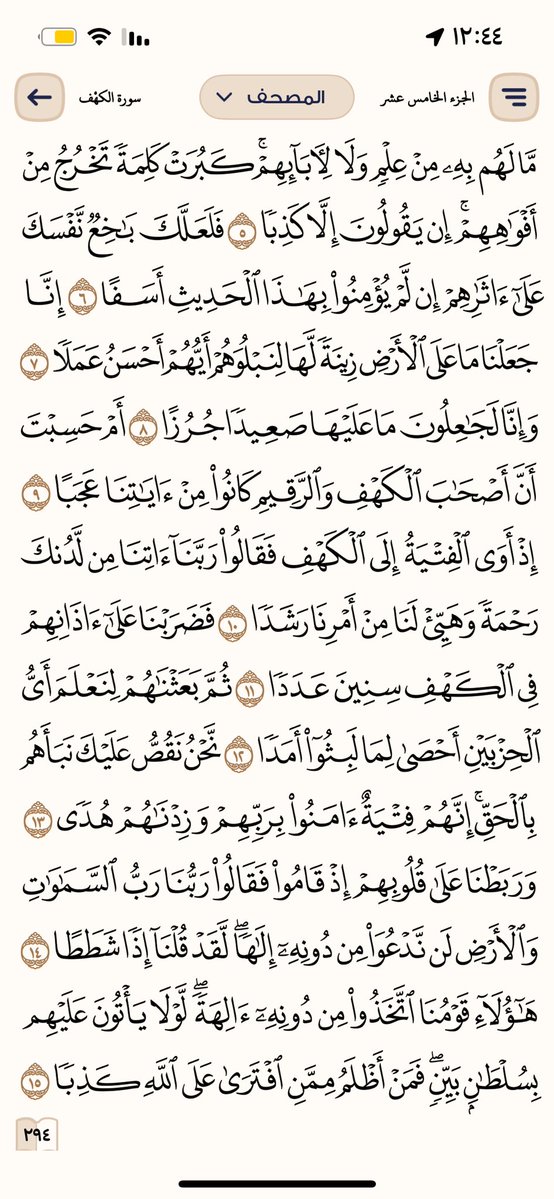 ١٢:٤٤
الجزء الخامس عشر
المصحف
سورة الكهْف
مَّا لَهُم بِهِۦ مِنْ عِلْمٍ وَلَا لِأٓبَآئِهِمْ ۚ كَبُرَتْ كَلِمَةً تَخْرُجُ مِنْ
أَفْوَٰهِهِمْ ۚ إِن يَقُولُونَ إِلَّا كَذِبًا ٥ فَلَعَلَّكَ بَٰخِعٌ نَّفْسَكَ
عَلَىٰٓ ءَاثَٰرِهِمْ إِن لَّمْ يُؤْمِنُوا۟ بِهَٰذَا ٱلْحَدِيثِ أَسَفًا ٦ إِنَّا
جَعَلْنَا مَا عَلَى ٱلْأَرْضِ زِينَةً لَّهَا لِنَبْلُوَهُمْ أَيُّهُمْ أَحْسَنُ عَمَلًا ٧
وَإِنَّا لَجَٰعِلُونَ مَا عَلَيْهَا صَعِيدًا جُرُزًا ٨ أَمْ حَسِبْتَ
أَنَّ أَصْحَٰبَ ٱلْكَهْفِ وَٱلرَّقِيمِ كَانُوا۟ مِنْ ءَايَٰتِنَا عَجَبًا ٩
إِذْ أَوَى ٱلْفِتْيَةُ إِلَى ٱلْكَهْفِ فَقَالُوا۟ رَبَّنَآ ءَاتِنَا مِن لَّدُنكَ
رَحْمَةً وَهَيِّئْ لَنَا مِنْ أَمْرِنَا رَشَدًا ١٠ فَضَرَبْنَا عَلَىٰٓ ءَاذَانِهِمْ
فِى ٱلْكَهْفِ سِنِينَ عَدَدًا ١١ ثُمَّ بَعَثْنَٰهُمْ لِنَعْلَمَ أَىُّ
ٱلْحِزْبَيْنِ أَحْصَىٰ لِمَا لَبِثُوٓا۟ أَمَدًا ١٢ نَّحْنُ نَقُصُّ عَلَيْكَ نَبَأَهُم
بِٱلْحَقِّ ۚ إِنَّهُمْ فِتْيَةٌ ءَامَنُوا۟ بِرَبِّهِمْ وَزِدْنَٰهُمْ هُدًى ١٣
وَرَبَطْنَا عَلَىٰ قُلُوبِهِمْ إِذْ قَامُوا۟ فَقَالُوا۟ رَبُّنَا رَبُّ ٱلسَّمَٰوَٰتِ
وَٱلْأَرْضِ لَن نَّدْعُوَا۟ مِن دُونِهِۦٓ إِلَٰهًا ۖ لَّقَدْ قُلْنَآ إِذًا شَطَطًا ١٤
هَٰٓؤُلَآءِ قَوْمُنَا ٱتَّخَذُوا۟ مِن دُونِهِۦٓ ءَالِهَةً ۖ لَّوْلَا يَأْتُونَ عَلَيْهِم
بِسُلْطَٰنٍۭ بَيِّنٍ ۖ فَمَنْ أَظْلَمُ مِمَّنِ ٱفْتَرَىٰ عَلَى ٱللَّهِ كَذِبًا ١٥
٢٩٤